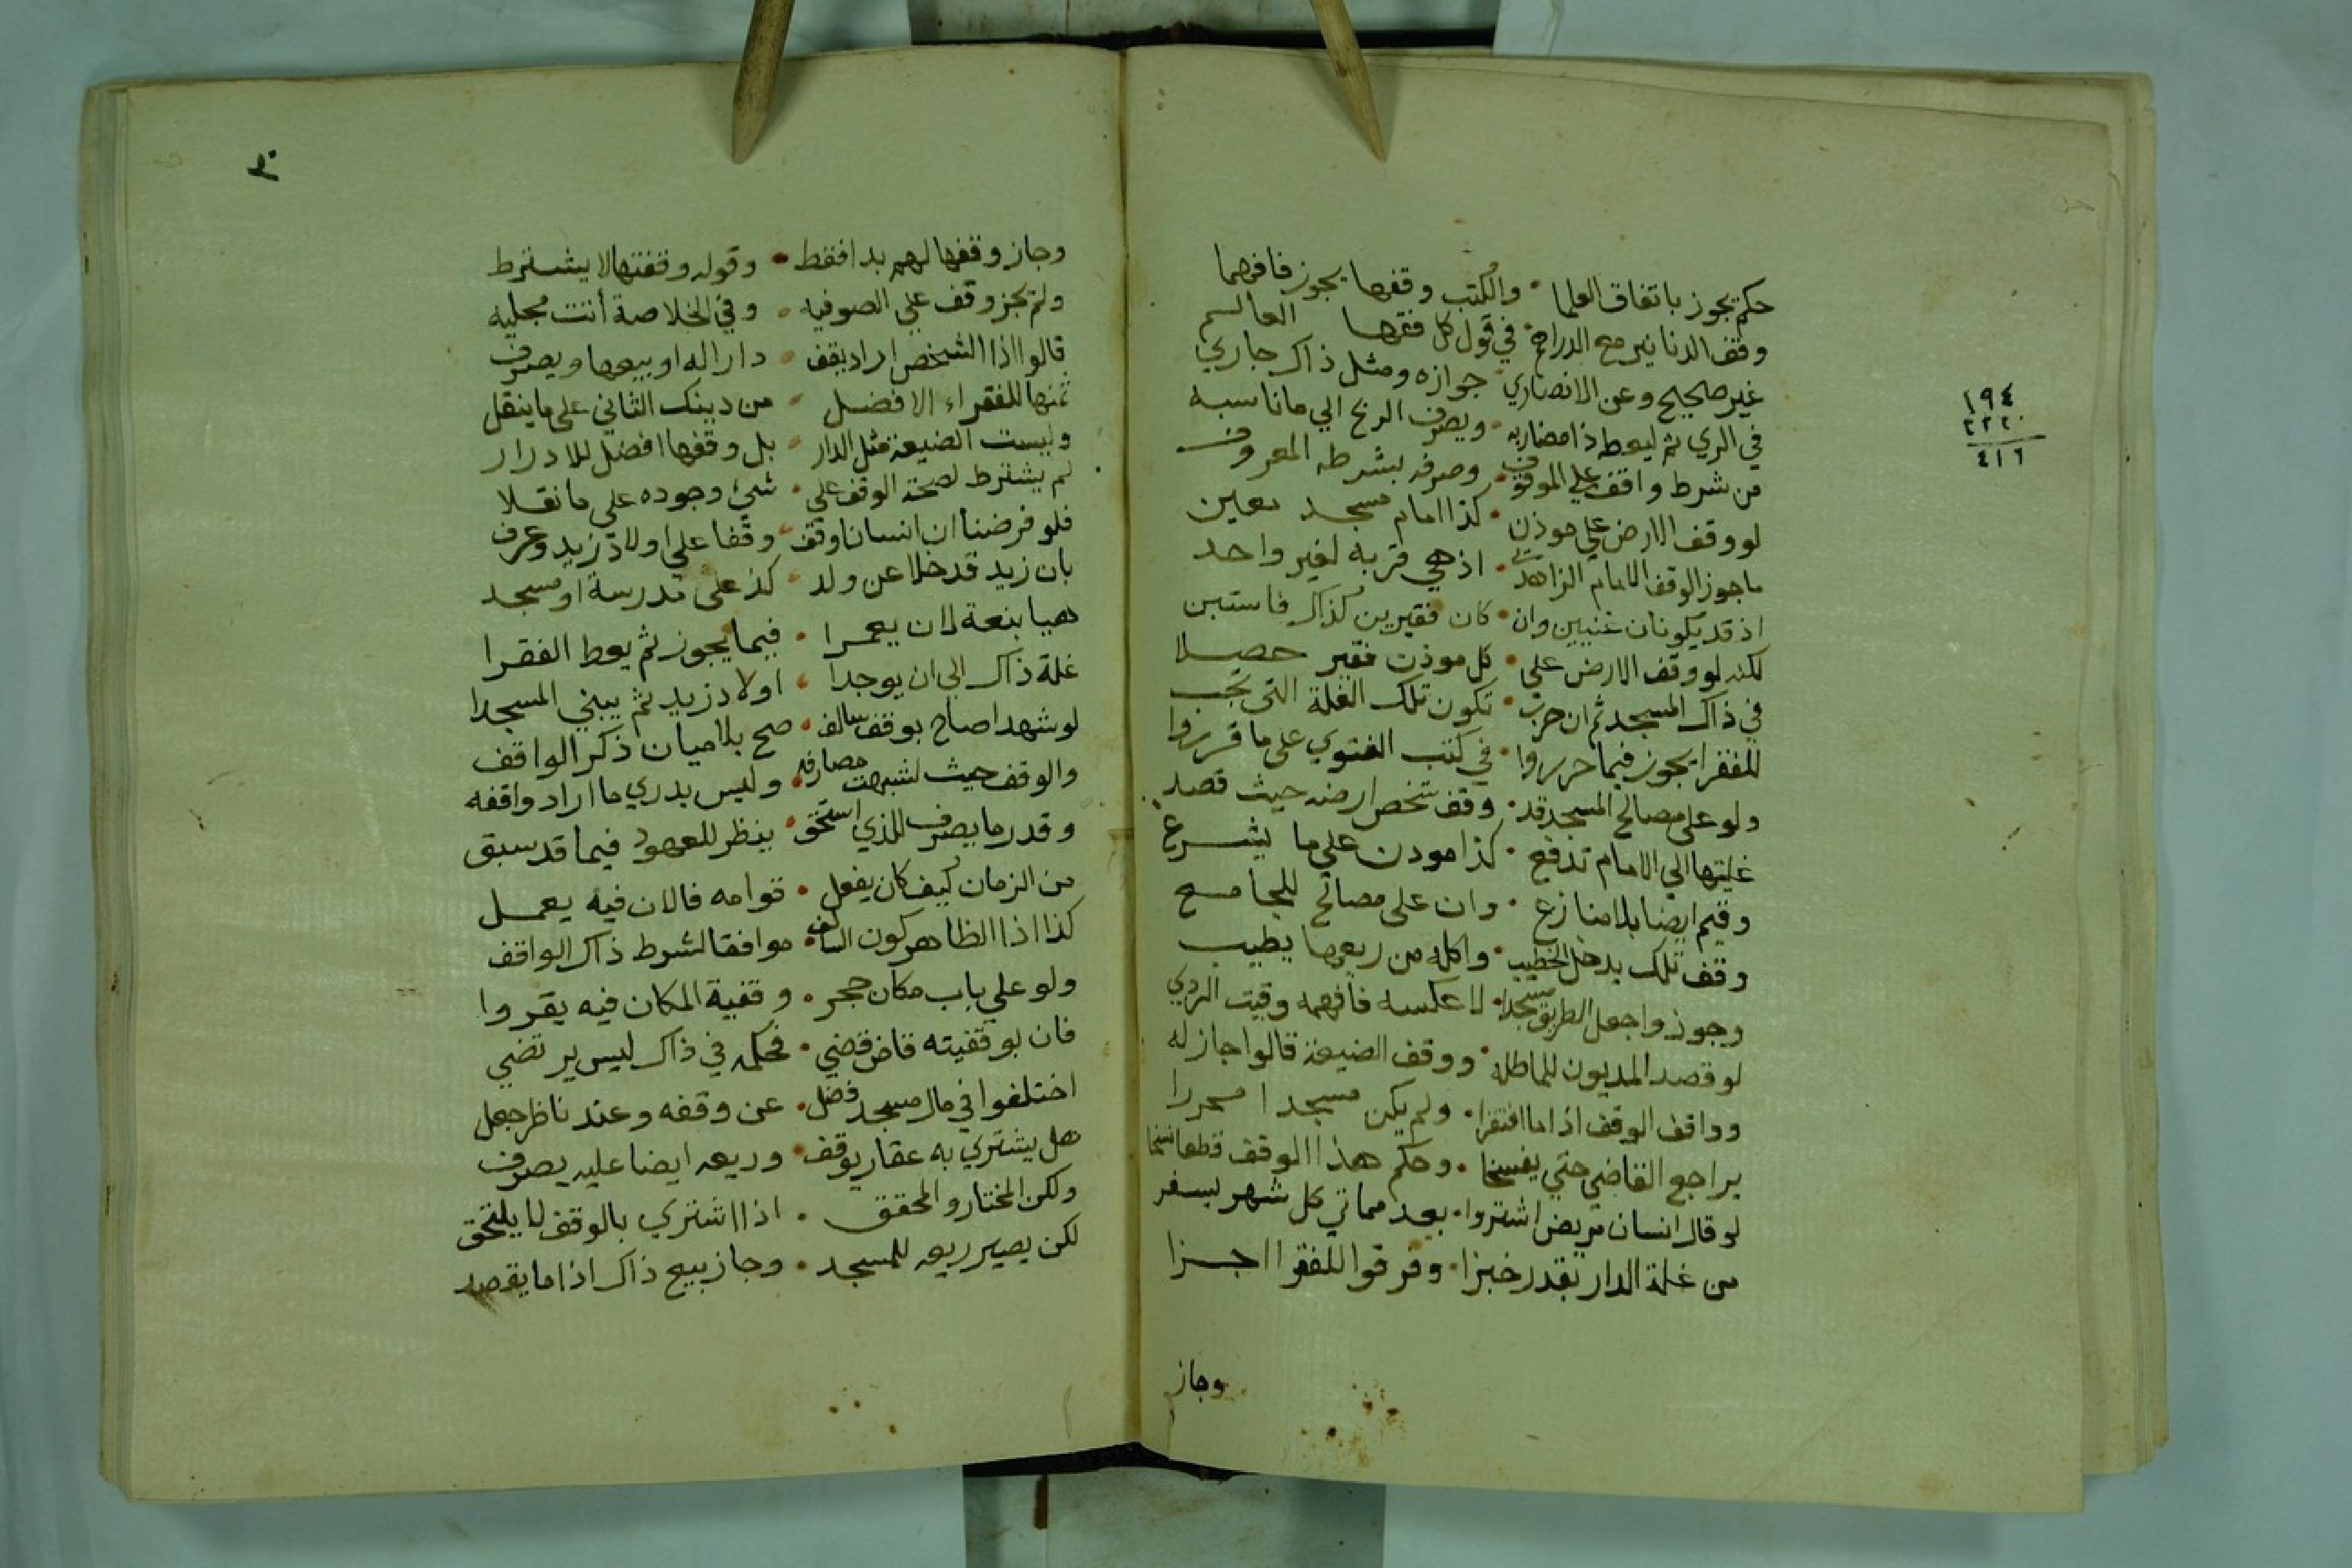 حكم يجوز باتفاق العلما • والكتب وقفها يجوز فافهما
وقف الدنانير مع الدراهم • في قول كل فقها العالم
غير صحيح وعن الانصاري • جوازه ومثل ذاك جاري
في الري ثم ليعط ذا مضاربه • ويصرف الربح الي ما ناسبه
من شرط واقف علي الموقوف • وصرفه بشرطه المعروف
لو وقف الارض علي موذن • كذا امام مسجد معين
ما جوز الوقف الامام الزاهد • اذ هي قربة لغير واحد
اذ قد يكونان غنيين وان • كان فقيرين كذاك فاستبن
لكنه لو وقف الارض على • كل موذن فقير حصلا
في ذاك المسجد ثم ان خربت • تكون تلك الغلة التي تجب
للفقرا يجوز فيما حرروا • في كتب الفتوي على ما قرروا
ولو على مصالح المسجد قد • وقف شخص ارضه حيث قصد
غلتها الي الامام تدفع • كذا موذن علي ما يشرع
وقيم ايضا بلا منازع • وان على مصالح للجامع
وقف تلك يدخل الخطيب • واكله من ريعها يطيب
وجوز واجعل الطريق مسجدا • لا عكسه فافهمه وقيت الردي
لو قصد المديون للماطله • ووقف الضيعة قالوا جاز له
وواقف الوقف اذا ما افتقرا • ولم يكن مسجدا محررا
يراجع القاضي حتي يفسخا • وحكم هذا الوقف قطعا نسخا
لو قال انسان مريض اشتروا • بعد مماتي كل شهر يسفر
من غلة الدار بقدر خبزا • وفرقوا للفقرا اجزا
وجاز
١٩٤
٢٢٢
٤١٦
وجاز وقفها لهم بدا فقط • وقوله وقفتها لا يشترط
ولم يجز وقف علي الصوفيه • وفي الخلاصة أتت مجليه
قالوا اذا الشخص اراد يقف • دارا له او بيعها ويصرف
ثمنها للفقراء الافضل • من دينك الثاني على ما ينقل
وليست الضيعة مثل الدار • بل وقفها افضل للادرار
لم يشترط لصحة الوقف على • شيء وجوده علي ما نقلا
فلو فرضنا ان انسانا وقف • وقفا علي اولاد زيد وعرف
بان زيد قد خلا عن ولد • كذ على مدرسة او مسجد
هيا بنعة لان يعمرا • فيما يجوز ثم يعط الفقرا
غلة ذاك الي ان يوجدا • اولاد زيد ثم يبني المسجدا
لو شهدا صاح بوقف سالف • صح بلا ميان ذكر الواقف
والوقف حيث اشتبهت مصارفه • وليس يدري ما اراد واقفه
وقدر ما يصرف للذي استحق • ينظر للعهود فيما قد سبق
من الزمان كيف كان يفعل • قوامه فالان فيه يعمل
كذا اذا الظاهر كون السالف • موافقا لشرط ذاك الواقف
ولو علي باب مكان حجر • وقفية المكان فيه يقروا
فان بوقفيته قاض قضي • فحكمه في ذاك ليس يرتضي
اختلفوا في مال مسجد فضل • عن وقفه وعند ناظر جعل
هل يشتري به عقار يوقف • وريعه ايضا عليه يصرف
ولكن المختار والمحقق • اذا اشتري بالوقف لا يلتحق
لكن يصير ريعه للمسجد • وجاز بيع ذاك اذا ما يقصد